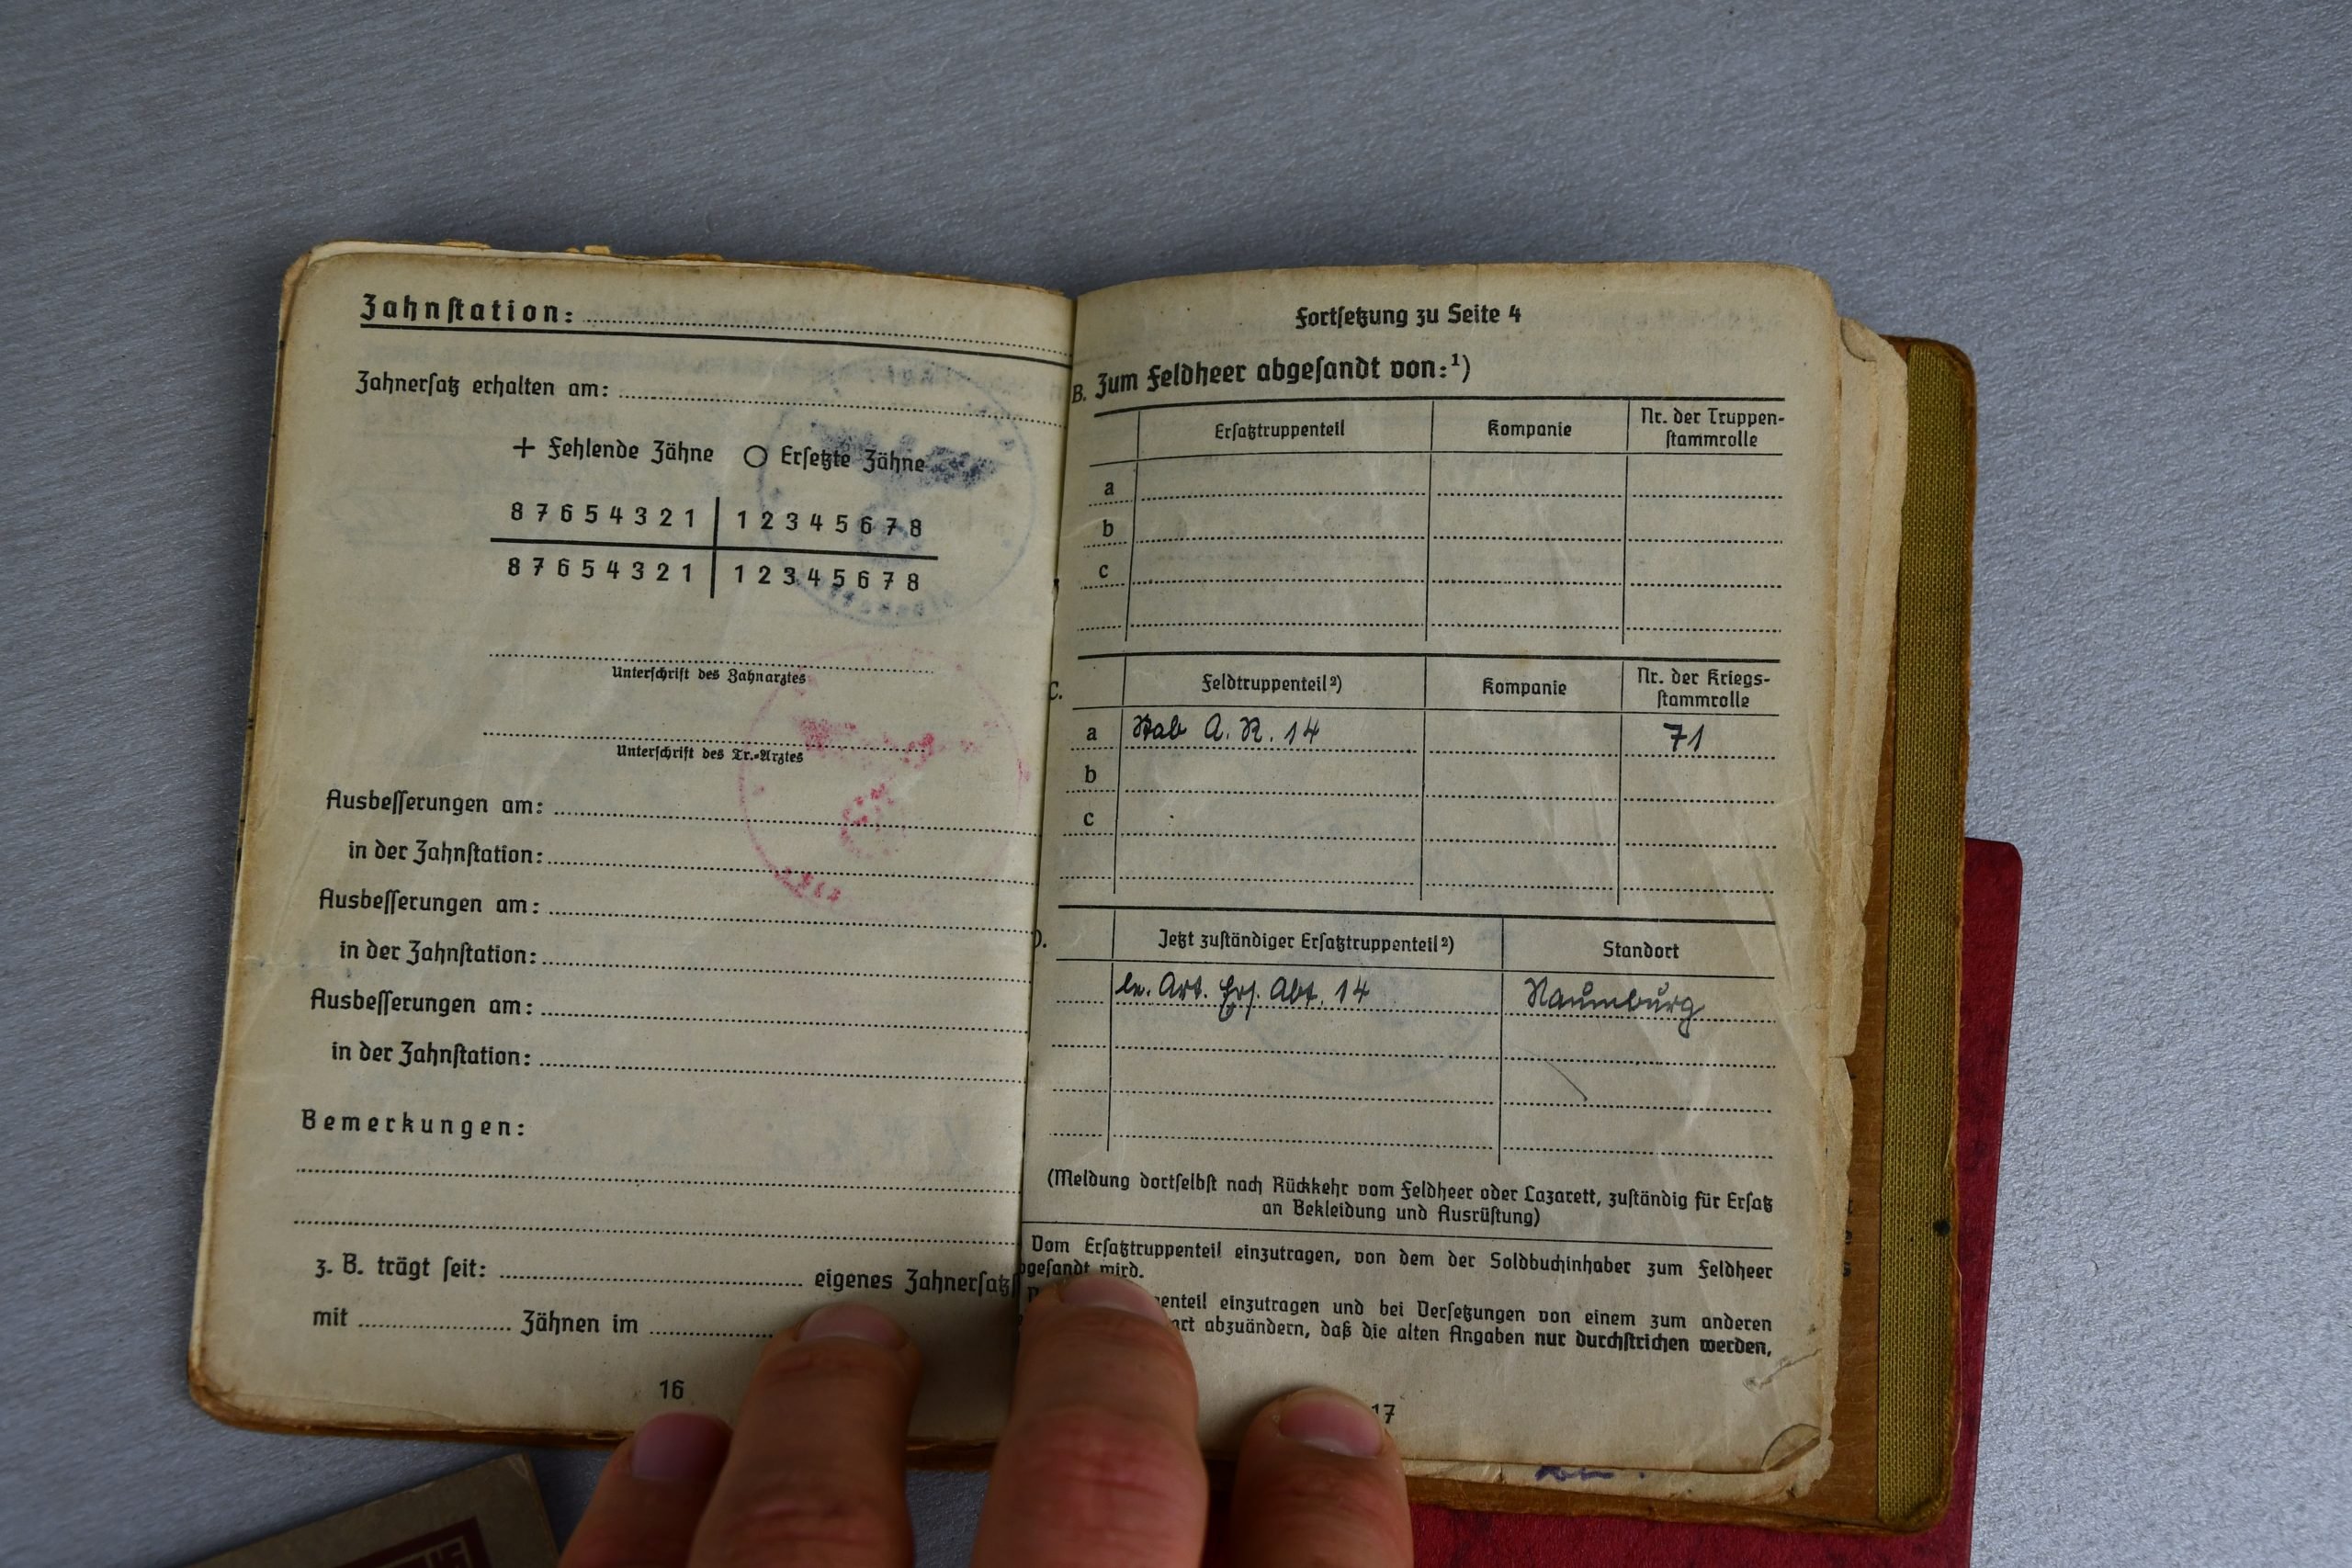 Zahnstation:
Zahnersatz erhalten am:
+ Fehlende Zähne O Ersetzte Zähne
8 7 6 5 4 3 2 1 | 1 2 3 4 5 6 7 8
8 7 6 5 4 3 2 1 | 1 2 3 4 5 6 7 8
Unterschrift des Zahnarztes
Unterschrift des Tr.-Arztes
Ausbesserungen am:
in der Zahnstation:
Ausbesserungen am:
in der Zahnstation:
Ausbesserungen am:
in der Zahnstation:
Bemerkungen:
z. B. trägt seit: eigenes Zahnersatz
mit Zähnen im
16
Fortsetzung zu Seite 4
B. Zum Feldheer abgesandt von:¹)
Ersatztruppenteil Kompanie Nr. der Truppen-
stammrolle
a
b
c
C. Feldtruppenteil²) Kompanie Nr. der Kriegs-
stammrolle
a Stab A. R. 14 71
b
c
D. Jetzt zuständiger Ersatztruppenteil²) Standort
le. Art. Ers. Abt. 14 Naumburg
(Meldung dortselbst nach Rückkehr vom Feldheer oder Lazarett, zuständig für Ersatz
an Bekleidung und Ausrüstung)
Vom Ersatztruppenteil einzutragen, von dem der Soldbuchinhaber zum Feldheer
gesandt wird.
enteil einzutragen und bei Versetzungen von einem zum anderen
rt abzuändern, daß die alten Angaben nur durchstrichen werden,
17